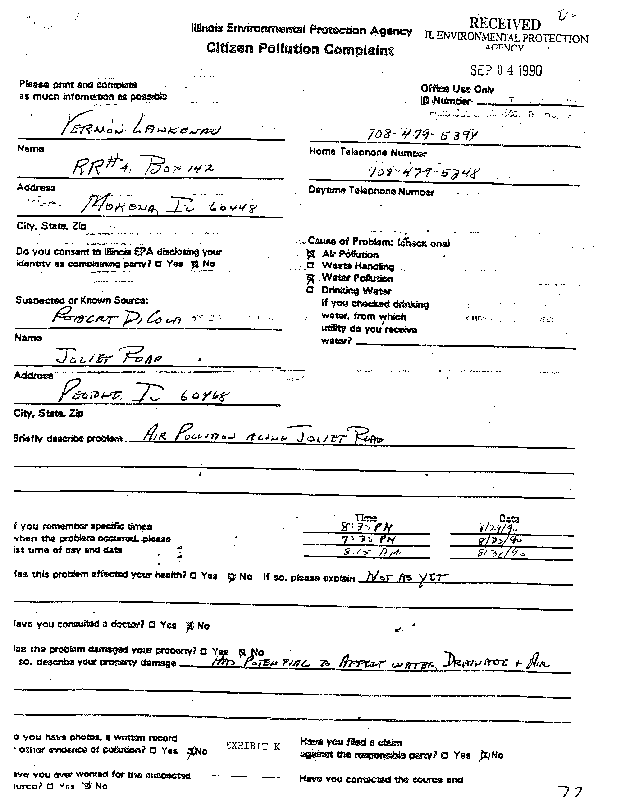 Illinois Environmental Protection Agency
Citizen Pollution Complaint
RECEIVED
IL ENVIRONMENTAL PROTECTION
AGENCY
SEP 04 1990
Please print and complete
as much information as possible
Office Use Only
ID Number
VERNON LANKENAU
708-479-5394
Name
Home Telephone Number
RR#4, BOX 142
708-479-5348
Address
Daytime Telephone Number
MOKENA, IL 60448
City, State, Zip
Do you consent to Illinois EPA disclosing your
identity as complaining party? □ Yes ☒ No
Cause of Problem: (check one)
☒ Air Pollution
□ Waste Handling
☒ Water Pollution
□ Drinking Water
If you checked drinking
water, from which
utility do you receive
water?
Suspected or Known Source:
ROBERT DiCOLA
Name
JOLIET ROAD
Address
PEOTONE, IL 60468
City, State, Zip
Briefly describe problem. AIR POLLUTION ALONG JOLIET ROAD
f you remember specific times
when the problem occurred, please
ist time of day and date
Time Date
8:30 PM 8/29/90
7:30 PM 8/30/90
8:15 AM 8/31/90
Has this problem affected your health? □ Yes ☒ No If so, please explain NOT AS YET
ave you consulted a doctor? □ Yes ☒ No
Has the problem damaged your property? □ Yes ☒ No
so, describe your property damage HAS POTENTIAL TO AFFECT WATER, DRAINAGE + AIR
o you have photos, a written record
other evidence of pollution? □ Yes ☒ No
EXHIBIT K
Have you filed a claim
against the responsible party? □ Yes ☒ No
ave you ever worked for the suspected
source? □ Yes ☒ No
Have you contacted the source and